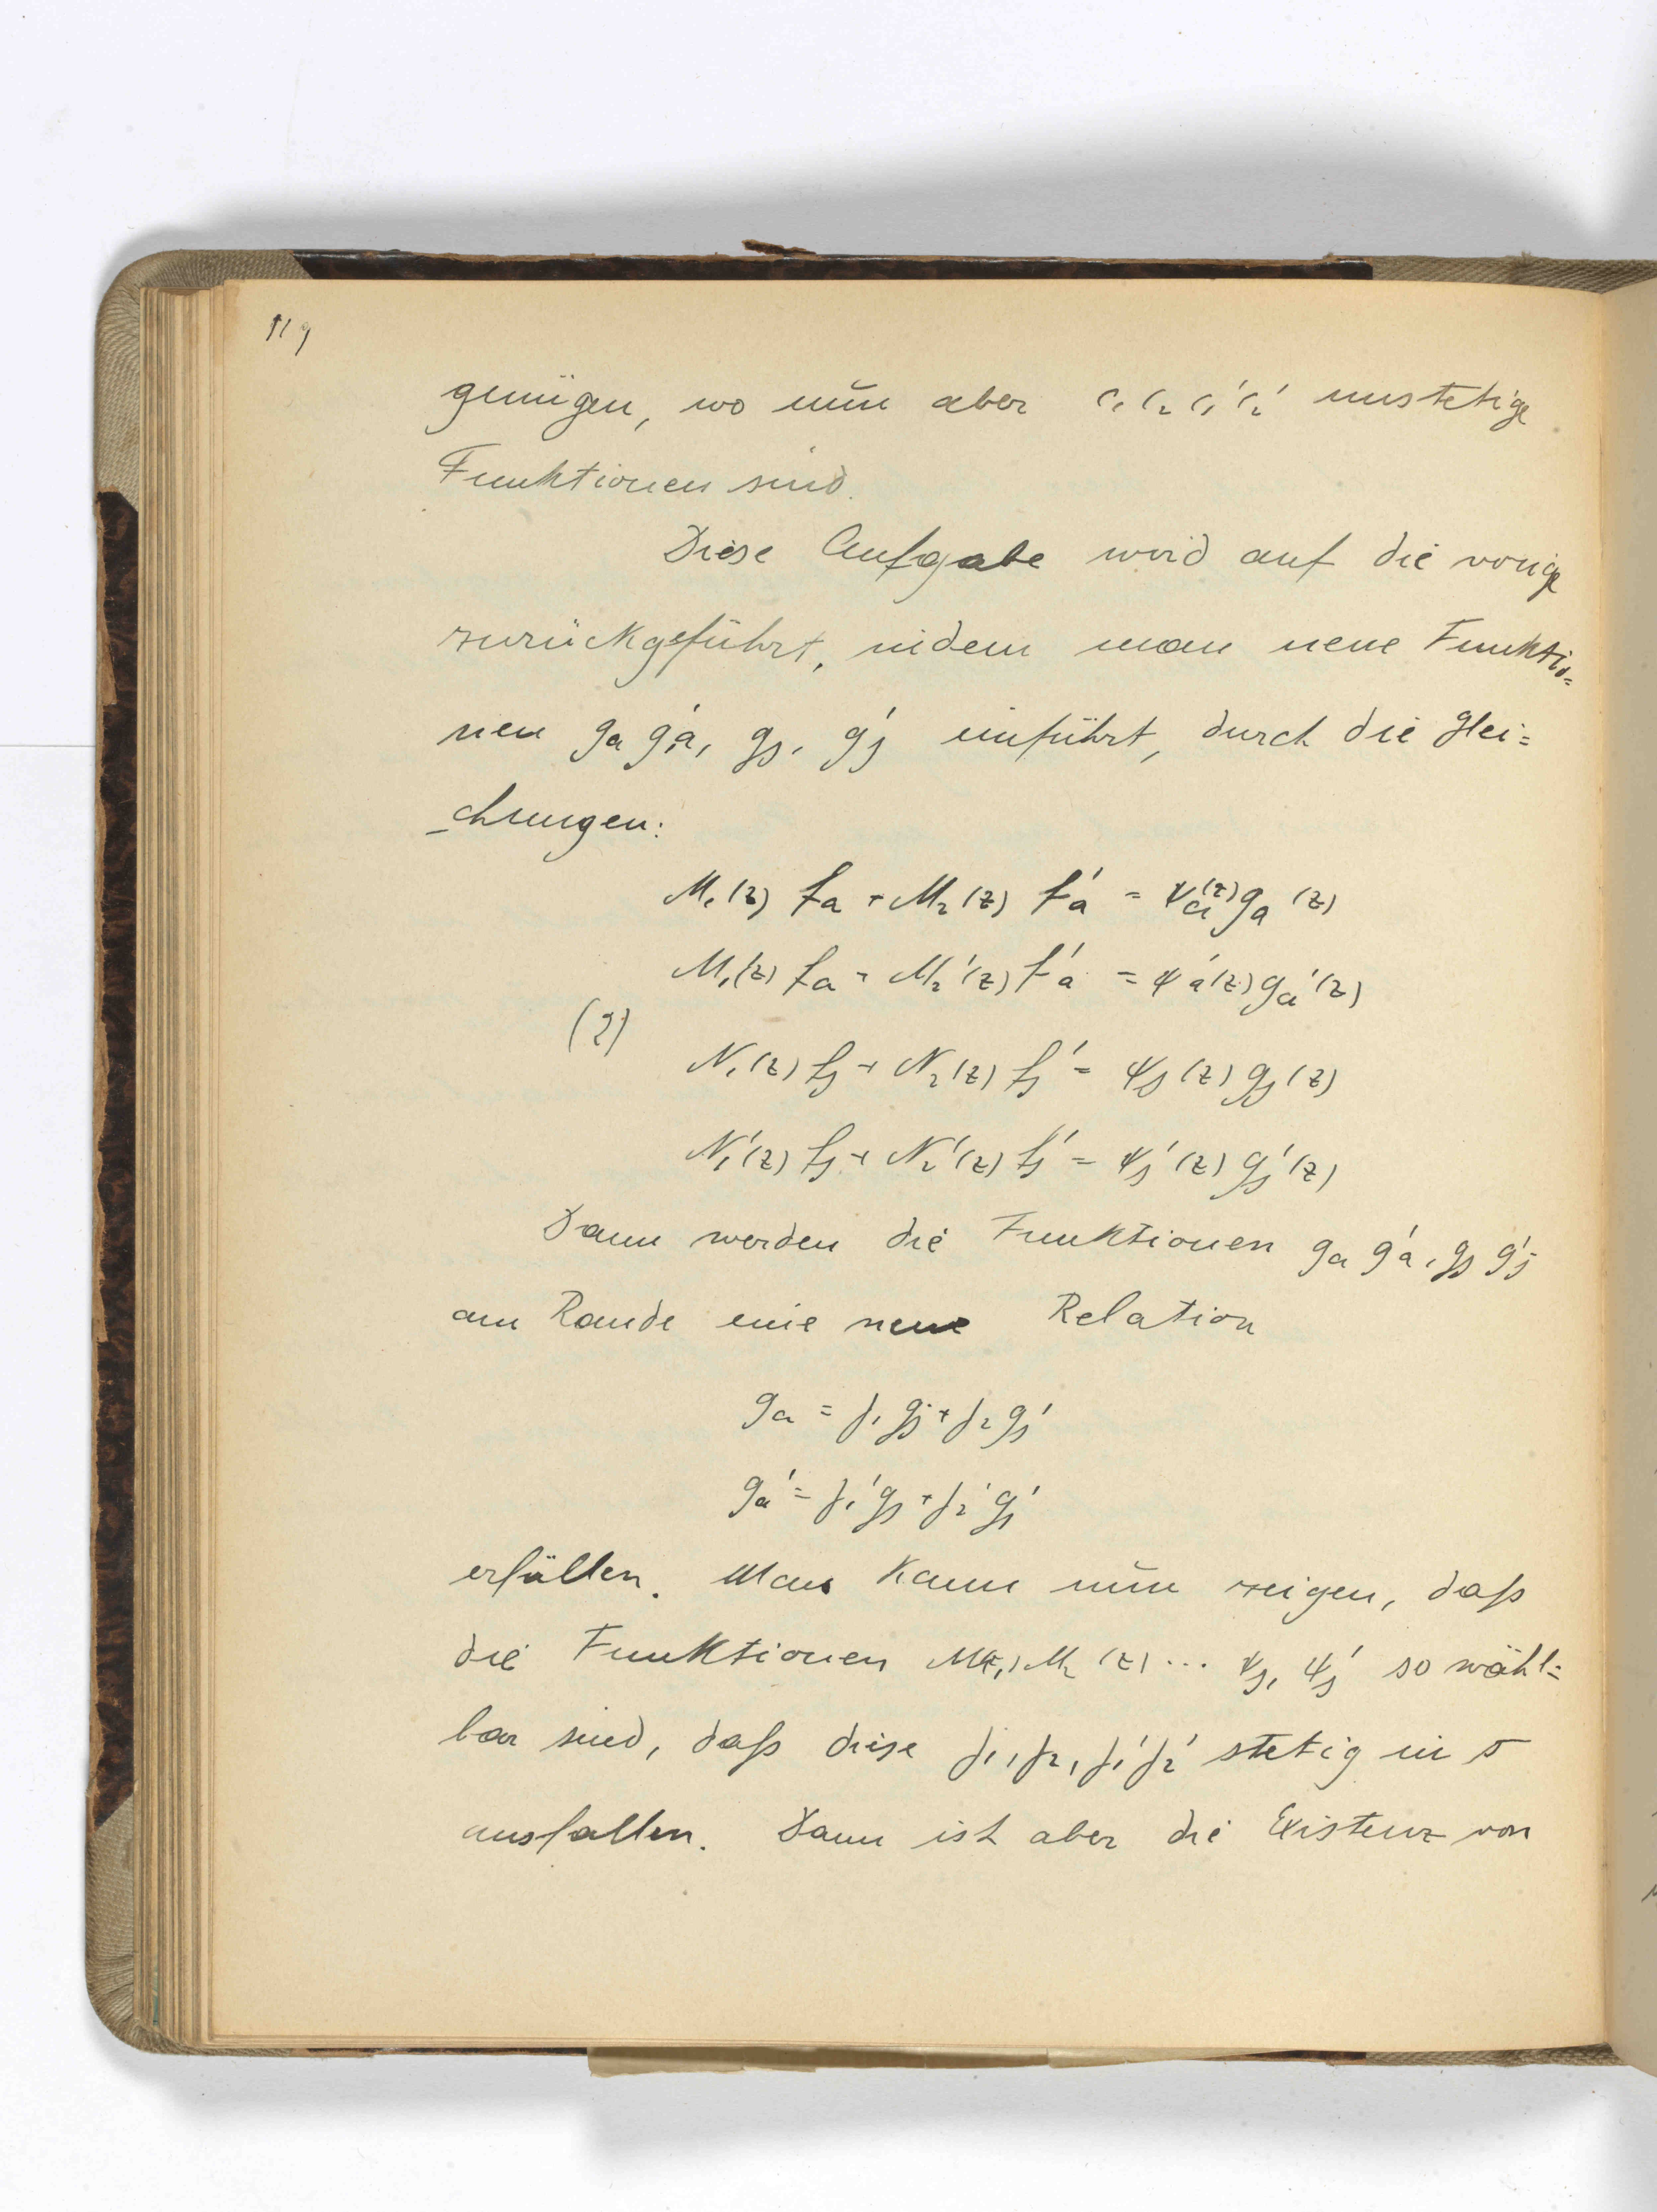 119
genügen, wo nŭn aber c₁ c₂ c₁' c₂' unstetige
Funktionen sind.
Diese Aufgabe wird auf die vorige
zurückgeführt, indem man neue Funktio=
nen gₐ g'ₐ, gⱼ, g'ⱼ einführt, durch die Glei=
chungen:
M₁(z) fₐ + M₂(z) f'ₐ = ψₐ(z) gₐ(z)
M₁'(z) fₐ + M₂'(z) f'ₐ = ψ'ₐ(z) gₐ'(z)
(2)
N₁(z) fⱼ + N₂(z) fⱼ' = ψⱼ(z) gⱼ(z)
N₁'(z) fⱼ + N₂'(z) fⱼ' = ψⱼ'(z) gⱼ'(z)
Dann werden die Funktionen gₐ g'ₐ, gⱼ g'ⱼ
am Rande eine neue Relation
gₐ = γ₁ gⱼ + γ₂ gⱼ'
gₐ' = γ₁' gⱼ + γ₂' gⱼ'
erfüllen. Man kann nŭn zeigen, daß
die Funktionen M₁(z), M₂(z) ... ψⱼ, ψⱼ' so wähl=
bar sind, daß diese γ₁, γ₂, γ₁' γ₂' stetig in s
ausfallen. Dann ist aber die Existenz von